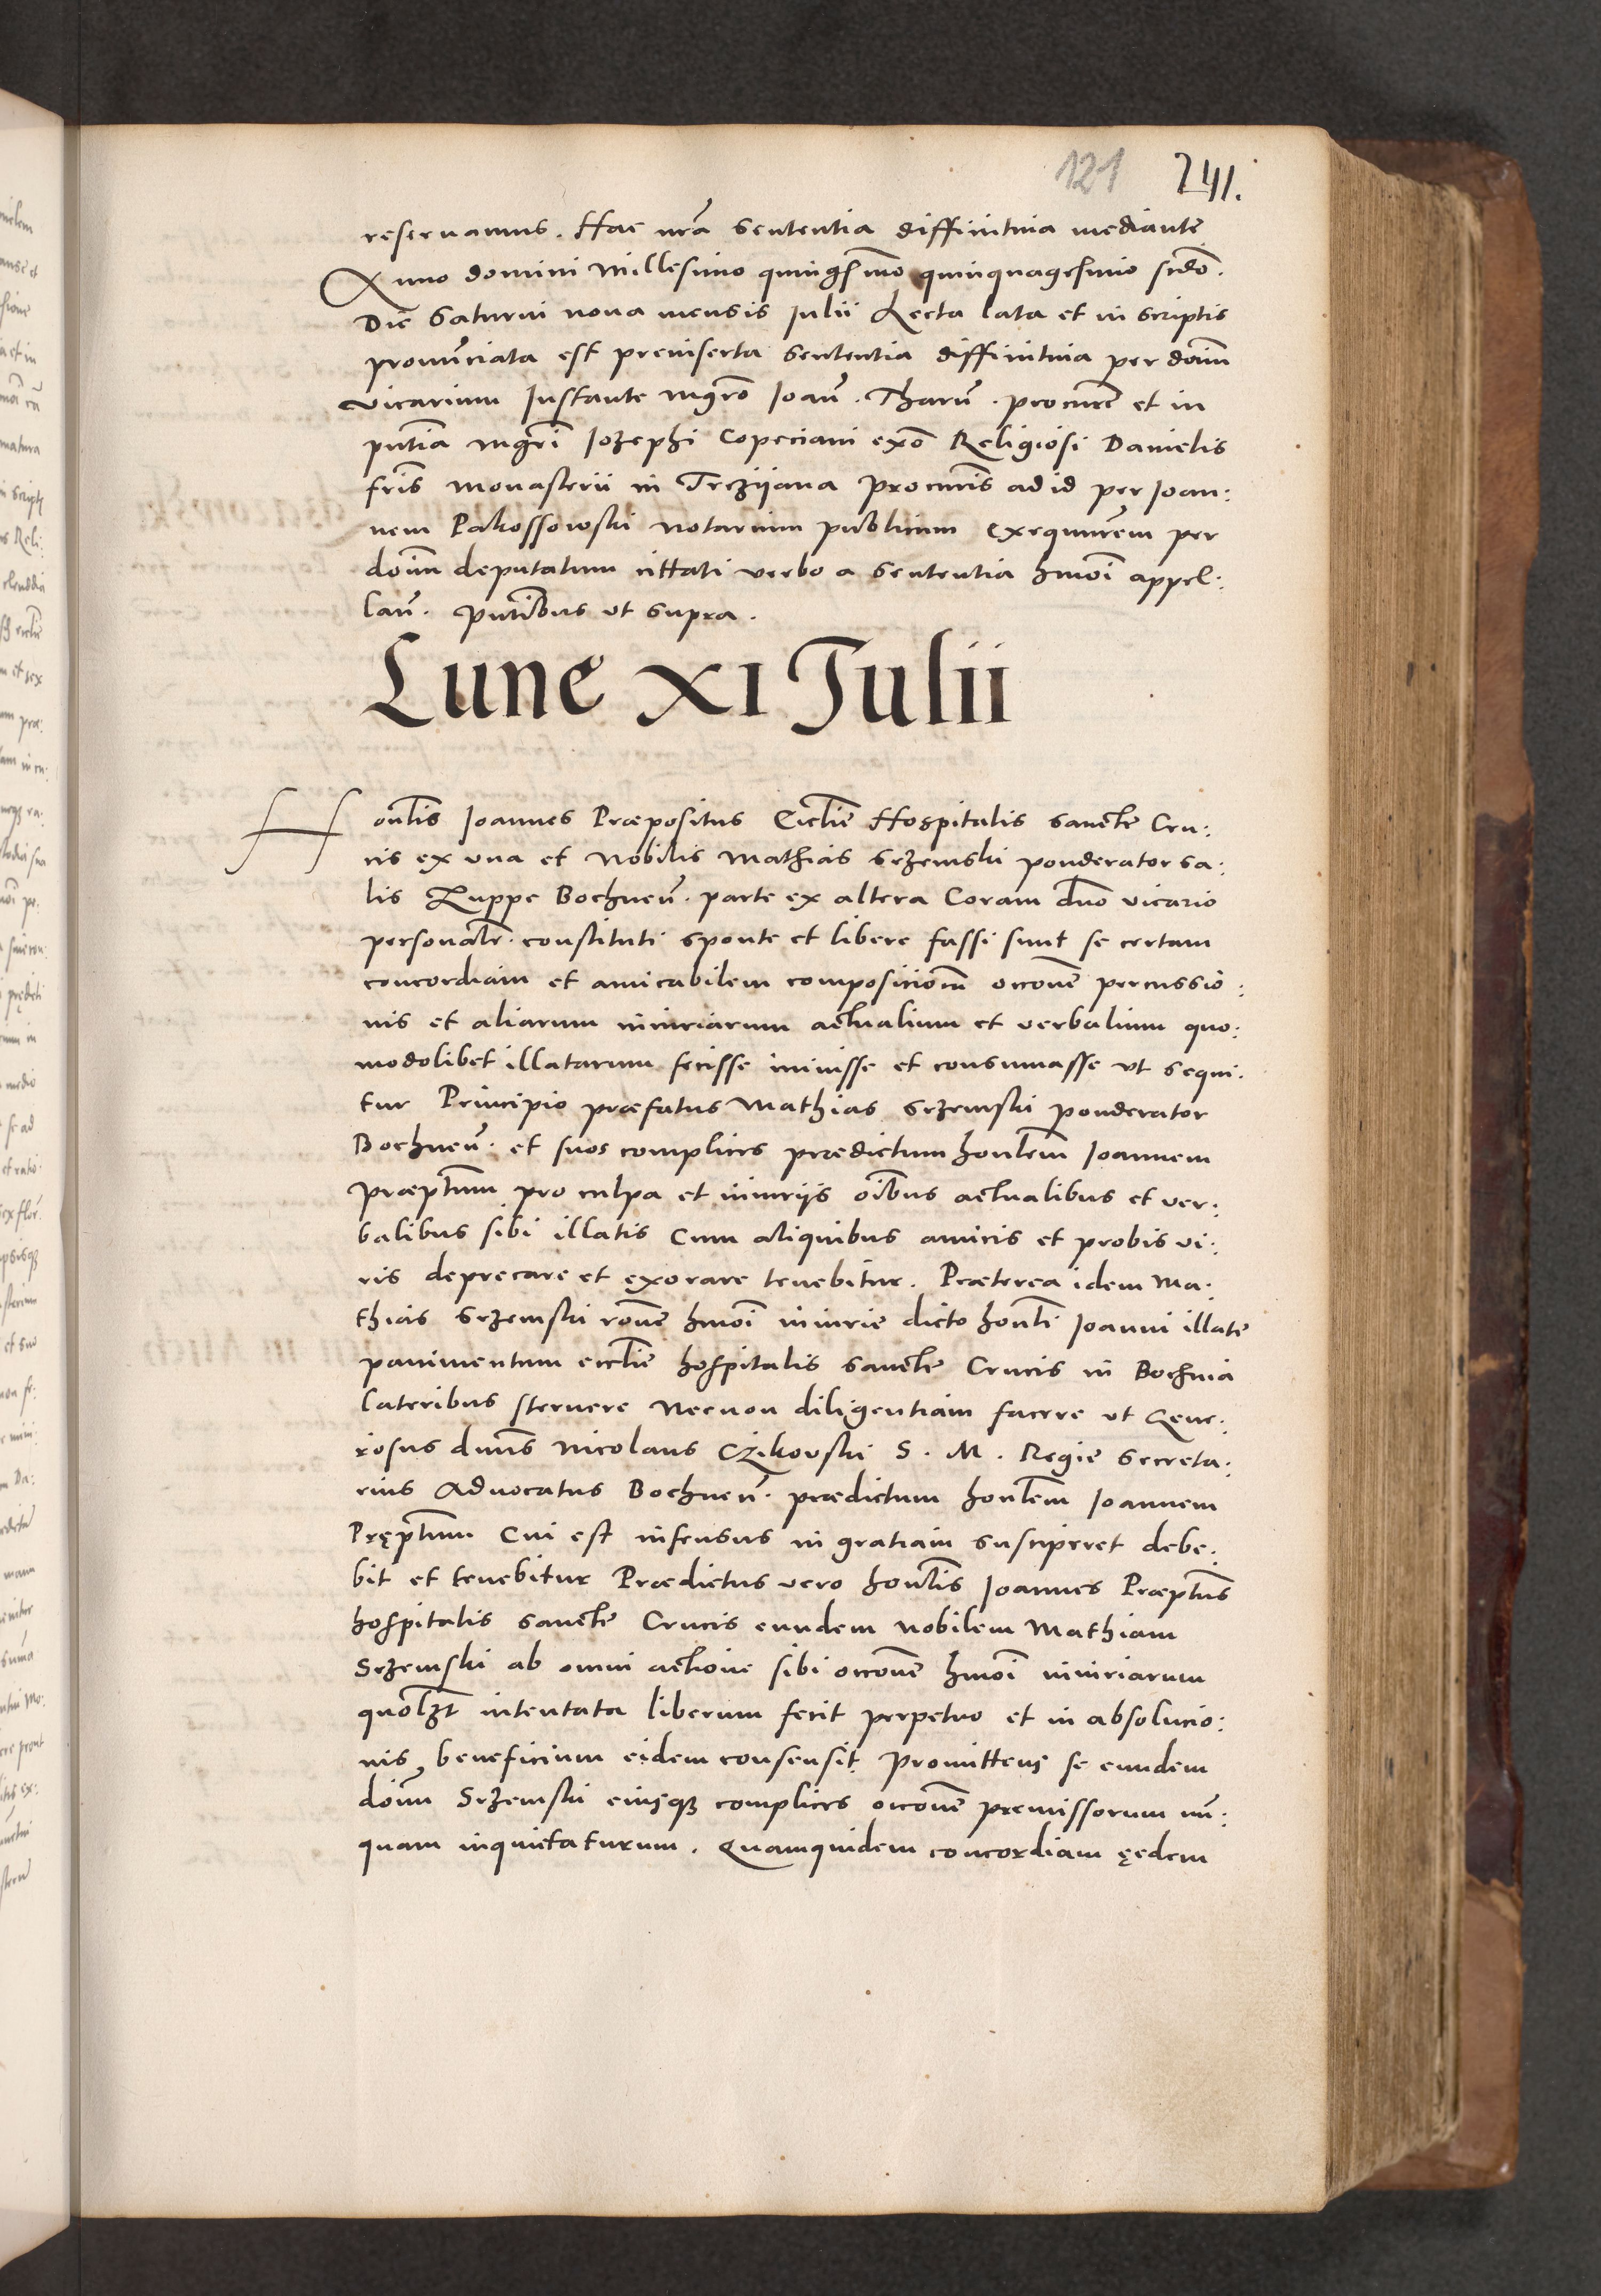 121 241.
reseruamus. Hac nrã sententia diffinitiua mediante
Anno domini Millesimo quingẽsimo quinquagesimo scdõ.
Die Saturni nona mensis Iulii Lecta lata et in scriptis
pronũciata est preinserta sententia diffinitiua per dõim
vicarium Instante mgrõ Ioañ. Tharñ. procurẽ et in
pñtia mgrĩ Iozephi Copeciani exõ Religiosi Danielis
frĩs monasterii in Trezijana procurĩs ad id per Ioan:
nem Pakossowski notarium publicum exequutẽm per
doĩm deputatum cittati verbo a sententia hmoĩ appel:
lañ. pñtĩbus vt supra.
Lune XI Iulii
Honl̃is Ioannes Præpositus Eccl̃ie Hospitalis sancte Cru:
cis ex vna et Nobilis Mathias Srzemski ponderator sa:
lis Zuppe Bochneñ. parte ex altera Coram dño vicario
personalr̃. constituti sponte et libere fassi sunt se certam
concordiam et amicabilem composicionẽm occõne percussio:
nis et aliarum iniuriarum actualium et verbalium quo:
modolibet illatarum fecisse iniuisse et consumasse vt sequi:
tur Principio præfatus Mathias Srzemski ponderator
Bochneñ. et suos complices prædictum honl̃em Ioannem
Præpt̃um pro culpa et iniurijs oĩbus actualibus et ver:
balibus sibi illatis Cum aliquibus amicis et probis vi:
ris deprecare et exorare tenebitur. Præterea idem Ma:
thias Srzemski rõne hmoĩ iniurie dicto honl̃i Ioanni illate
pauimentum eccl̃ie hospitalis sancte Crucis in Bochnia
lateribus sternere Necnon diligentiam facere vt Gene:
rosus dñus Nicolaus Czikovski S. M. Regie Secreta:
rius Advocatus Bochneñ. prædictum honl̃em Ioannem
Prępt̃um Cui est infensus in gratiam susciperet debe:
bit et tenebitur Prædictus vero honl̃is Ioannes Præpt̃us
hospitalis sancte Crucis eundem nobilem Mathiam
Srzemski ab omni actione sibi occõne hmoĩ iniuriarum
quolz̃t intentata liberum fecit perpetuo et in absolucio:
nis beneficium eidem consensit. Promittens se eundem
doĩm Srzemski eiusq complices occõne premissorum nũ:
quam inquietaturum. Quamquidem concordiam ęedem